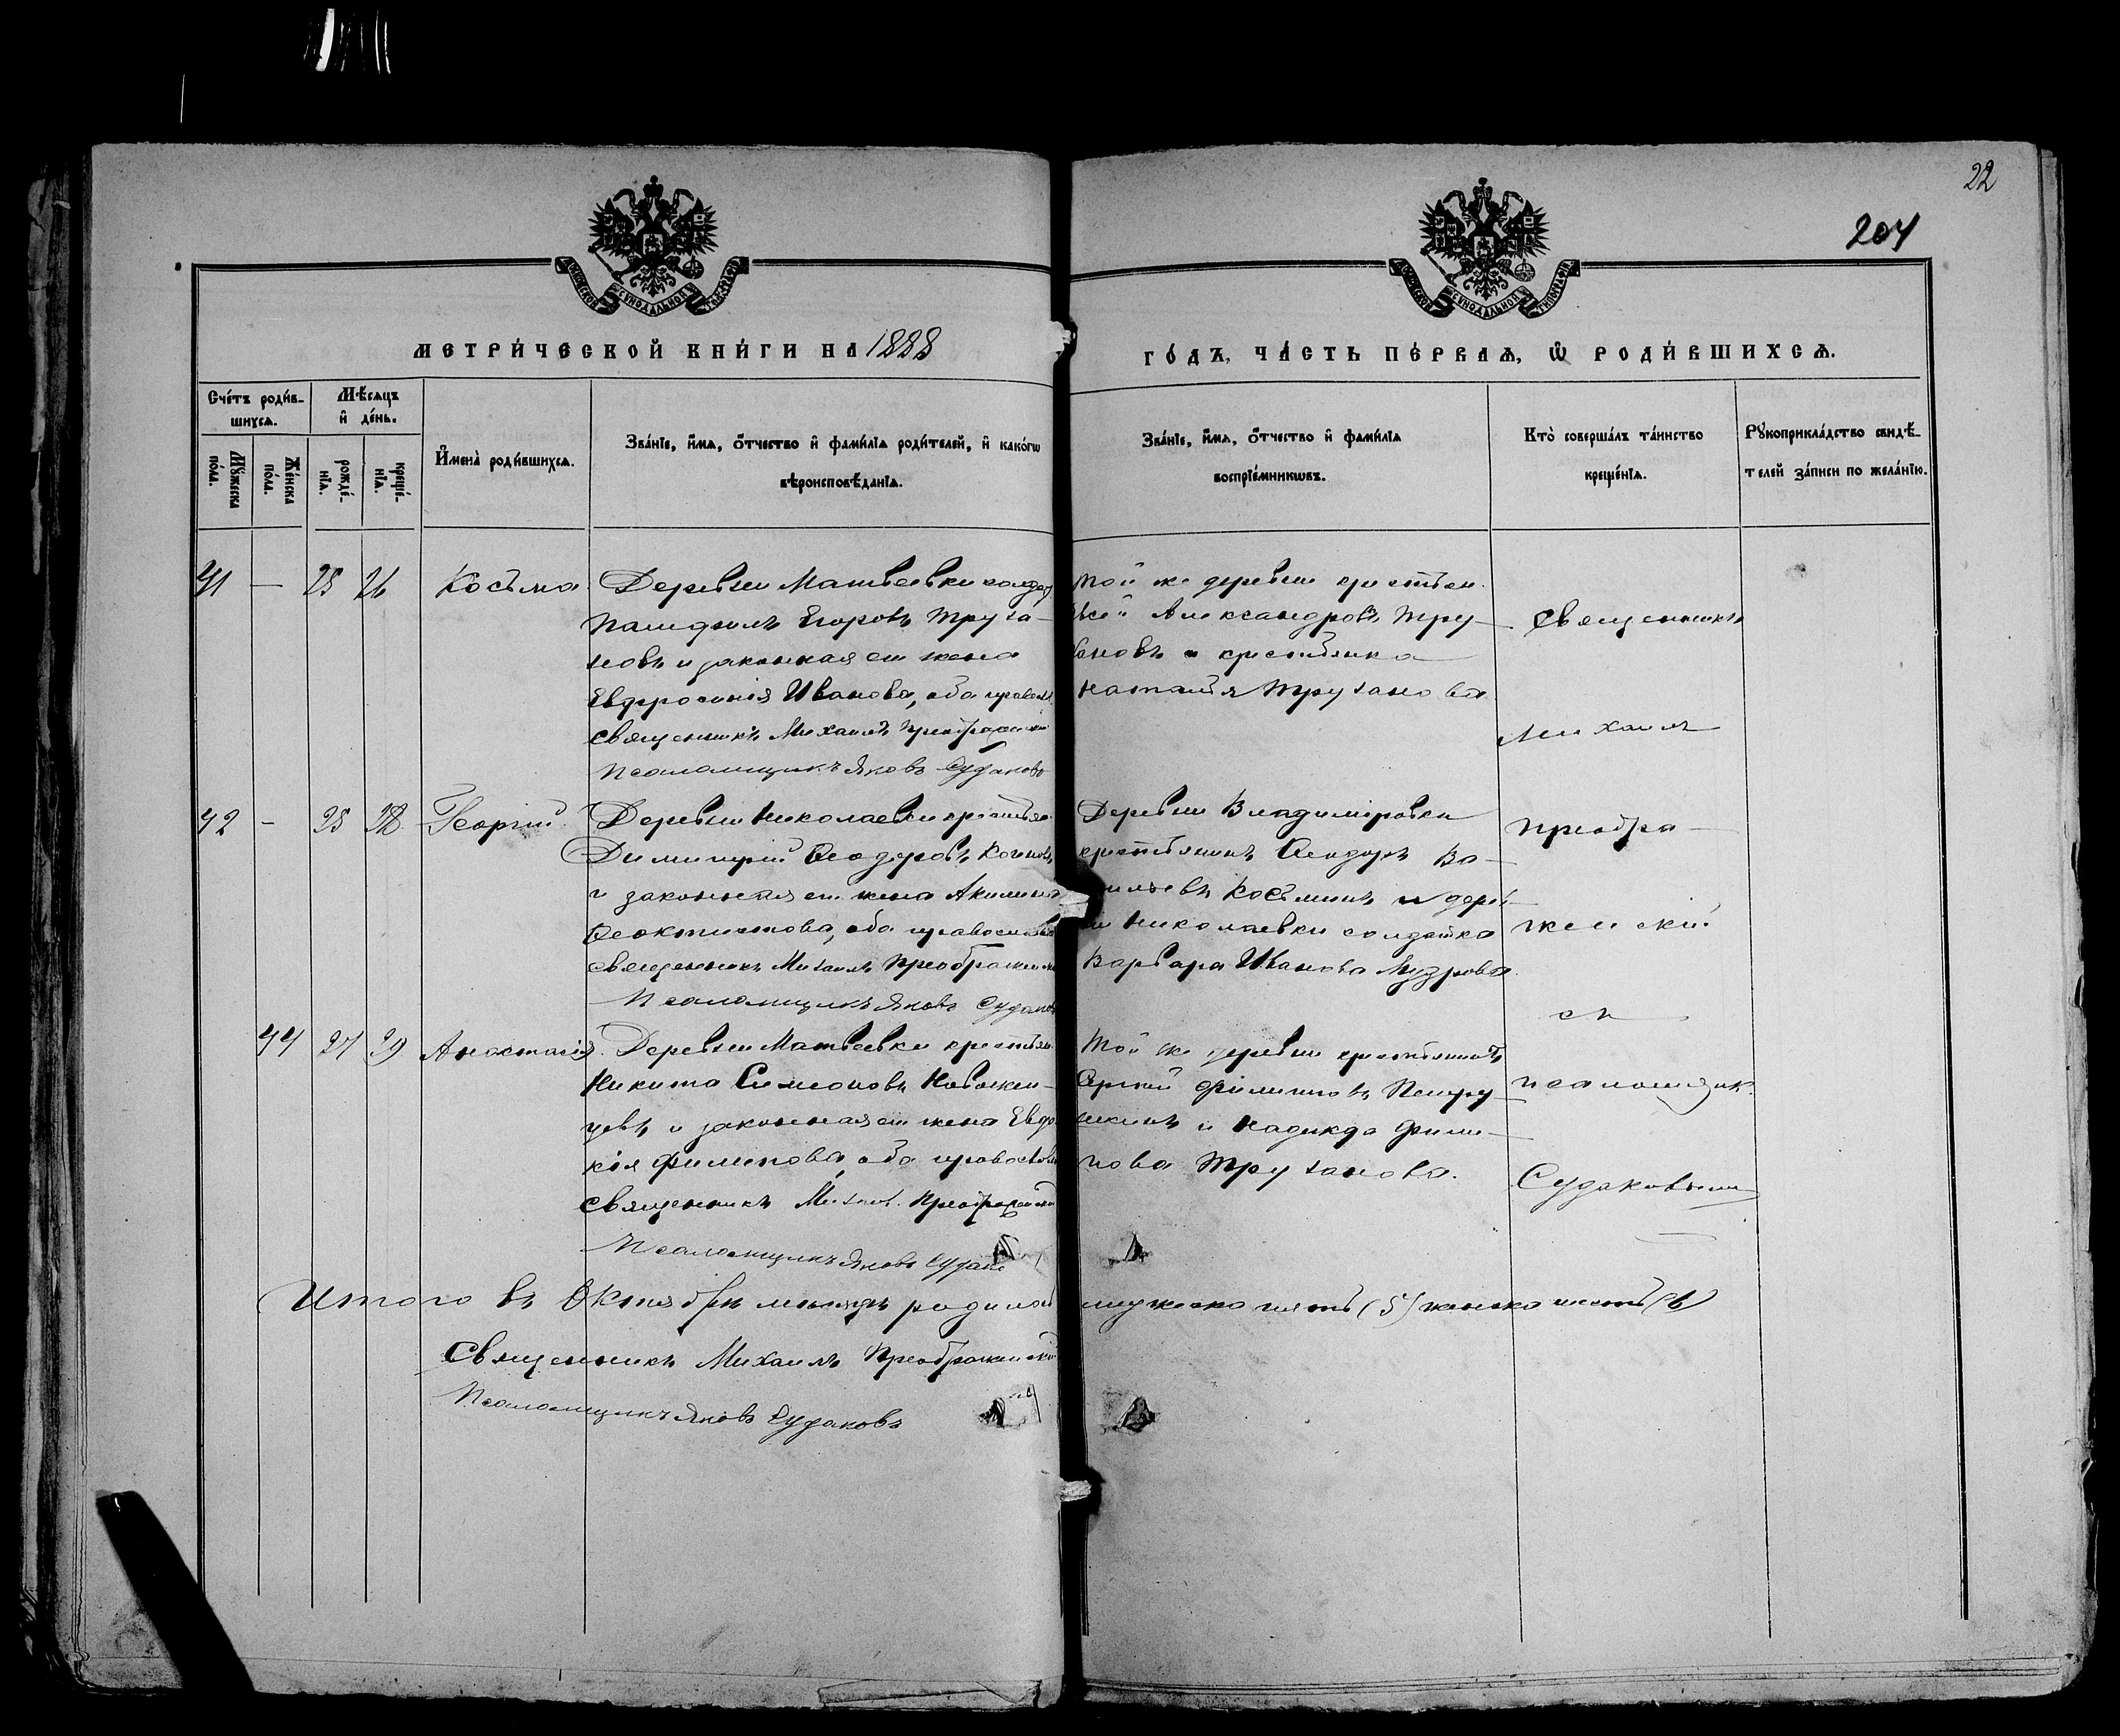 22
204
МЕТРИ́ЧЕСКОЙ КНИ́ГИ НА 1888
ГО́ДЪ, ЧА́СТЬ ПЕ́РВАѦ, Ѡ҆ РОДИ́ВШИХСѦ.
Сче́тъ роди́в-
шихсѧ.
Мꙋ́жеска по́ла.
Же́нска по́ла.
Мѣ́сѧцъ
и҆ де́нь.
рожде́-нїѧ.
креще́-нїѧ.
И҆мена̀ роди́вшихсѧ.
Зва́нїе, и҆́мѧ, ѻ҆́тчество и҆ фами́лїѧ роди́телей, и҆ како́гѡ
вѣроисповѣ́данїѧ.
Зва́нїе, и҆́мѧ, ѻ҆́тчество и҆ фами́лїѧ
воспрїе́мникѡвъ.
Кто̀ соверша́лъ та́инство
креще́нїѧ.
Рꙋкоприкла́дство свидѣ́-
телей за́писи по жела́нїю.
41 — 25 26 Косьма
Деревни Матвеевки солдат
Памфилъ Егоровъ Труха-
новъ и законная его жена
Евфросинія Иванова, оба правосл.
Священникъ Михаилъ Преображенскій
Псаломщикъ Яковъ Судаковъ
Той же деревни крестьян.
Александровъ Тру-
хановъ и крестьянка
Наталія Труханова
42 - 25 28 Георгій
Деревни Николаевки крестьян.
Димитрій Ѳеодоровъ
и законная его жена Акилина
Ѳеоктистова, оба православ
Священникъ Михаилъ Преображенскій
Псаломщикъ Яковъ Судаковъ
Деревни Владиміровки
крестьянинъ Ѳеодоръ Ва-
сильевъ Косьминъ и дерев-
ни Николаевки солдатка
Варвара Иванова
44 27 29 Анастасія
Деревни Матвеевки крестьян.
Никита Симеоновъ Новожен-
цевъ и законная его жена Евдо
кія Филипова, оба православ
Священникъ Михаил. Преображенскій
Псаломщикъ Яковъ Судаков
Той же деревни крестьянинъ
Сергій Филиповъ Петру-
шкинъ и Надежда Фили-
пова Труханова.
Священникъ
Михаилъ
Преобра-
женскій
съ
псаломщик.
Судаковымъ
Итого въ Октябрѣ месяцѣ родилось мужеска пять (5) женска шесть (6)
Священникъ Михаилъ Преображенскій
Псаломщикъ Яковъ Судаковъ